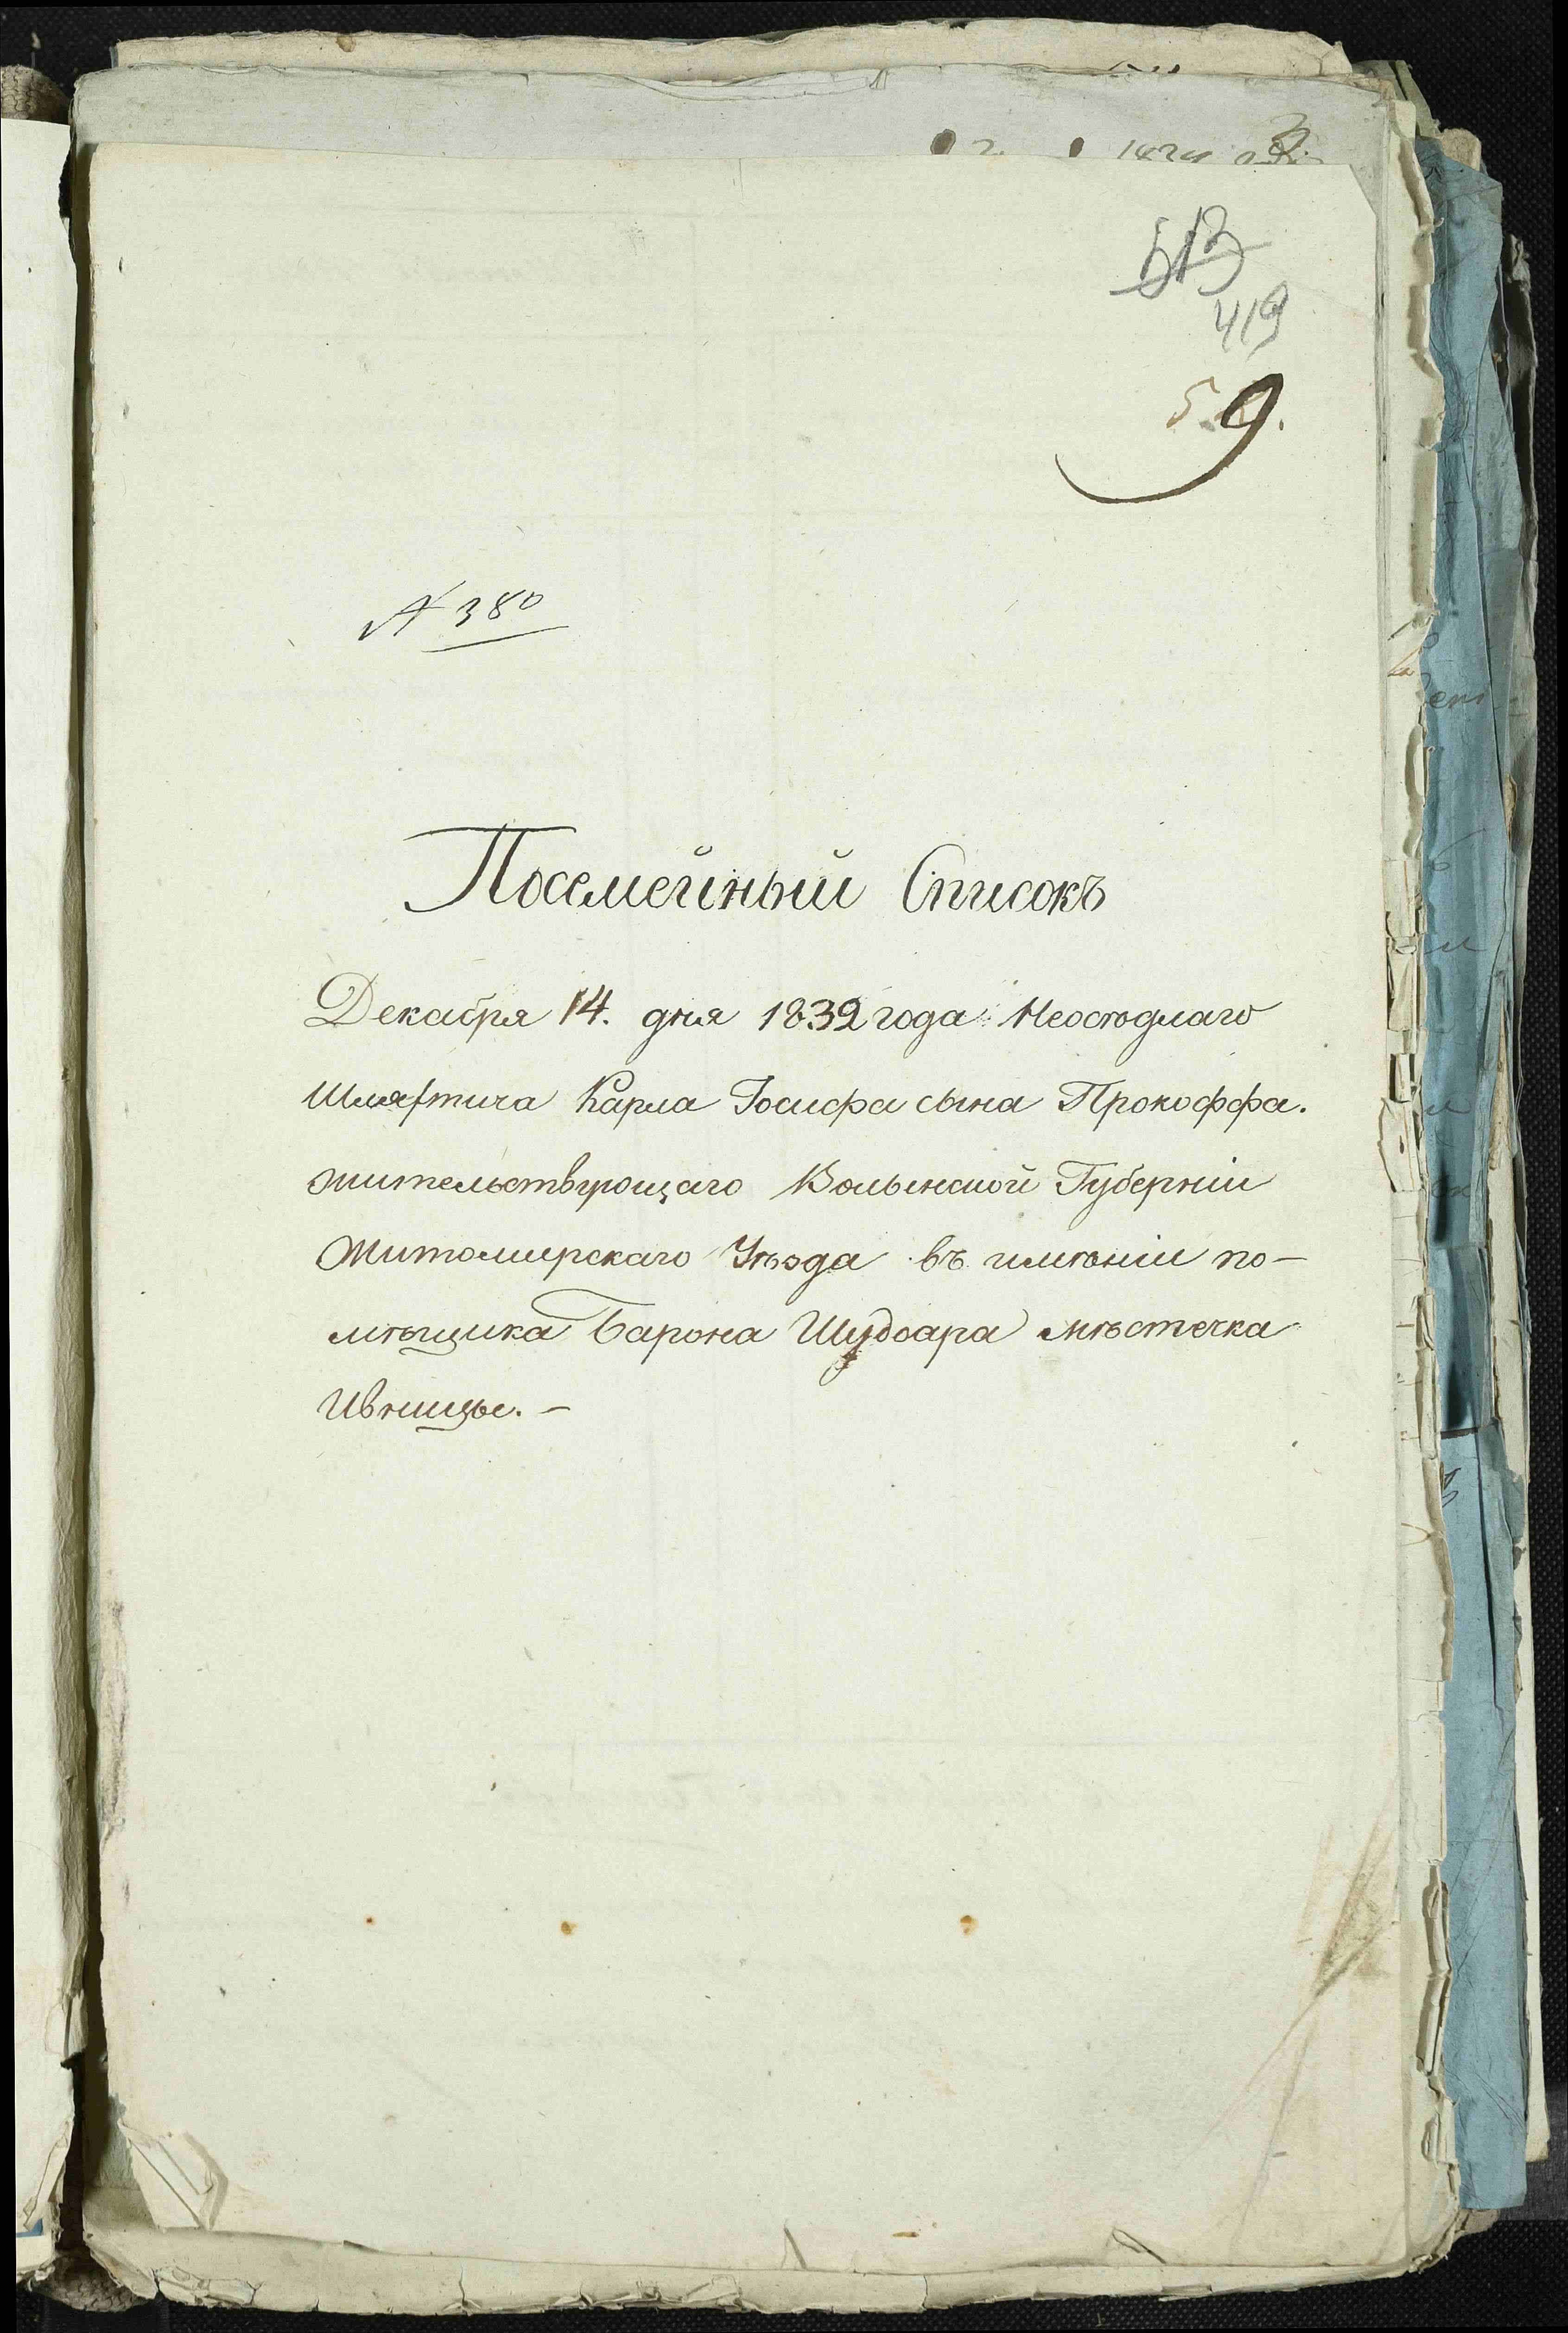 513
419
5 9.
№ 380
Посемейный Списокъ
Декабря 14. дня 1832 года Неоседлаго
Шляхтича Карла Іосифа сына Прокоффа.
жительствующаго Волынской Губерніи
Житомирскаго Уѣзда въ имѣніи по-
мѣщика Барона Шудоара мѣстечка
Ивницы. –